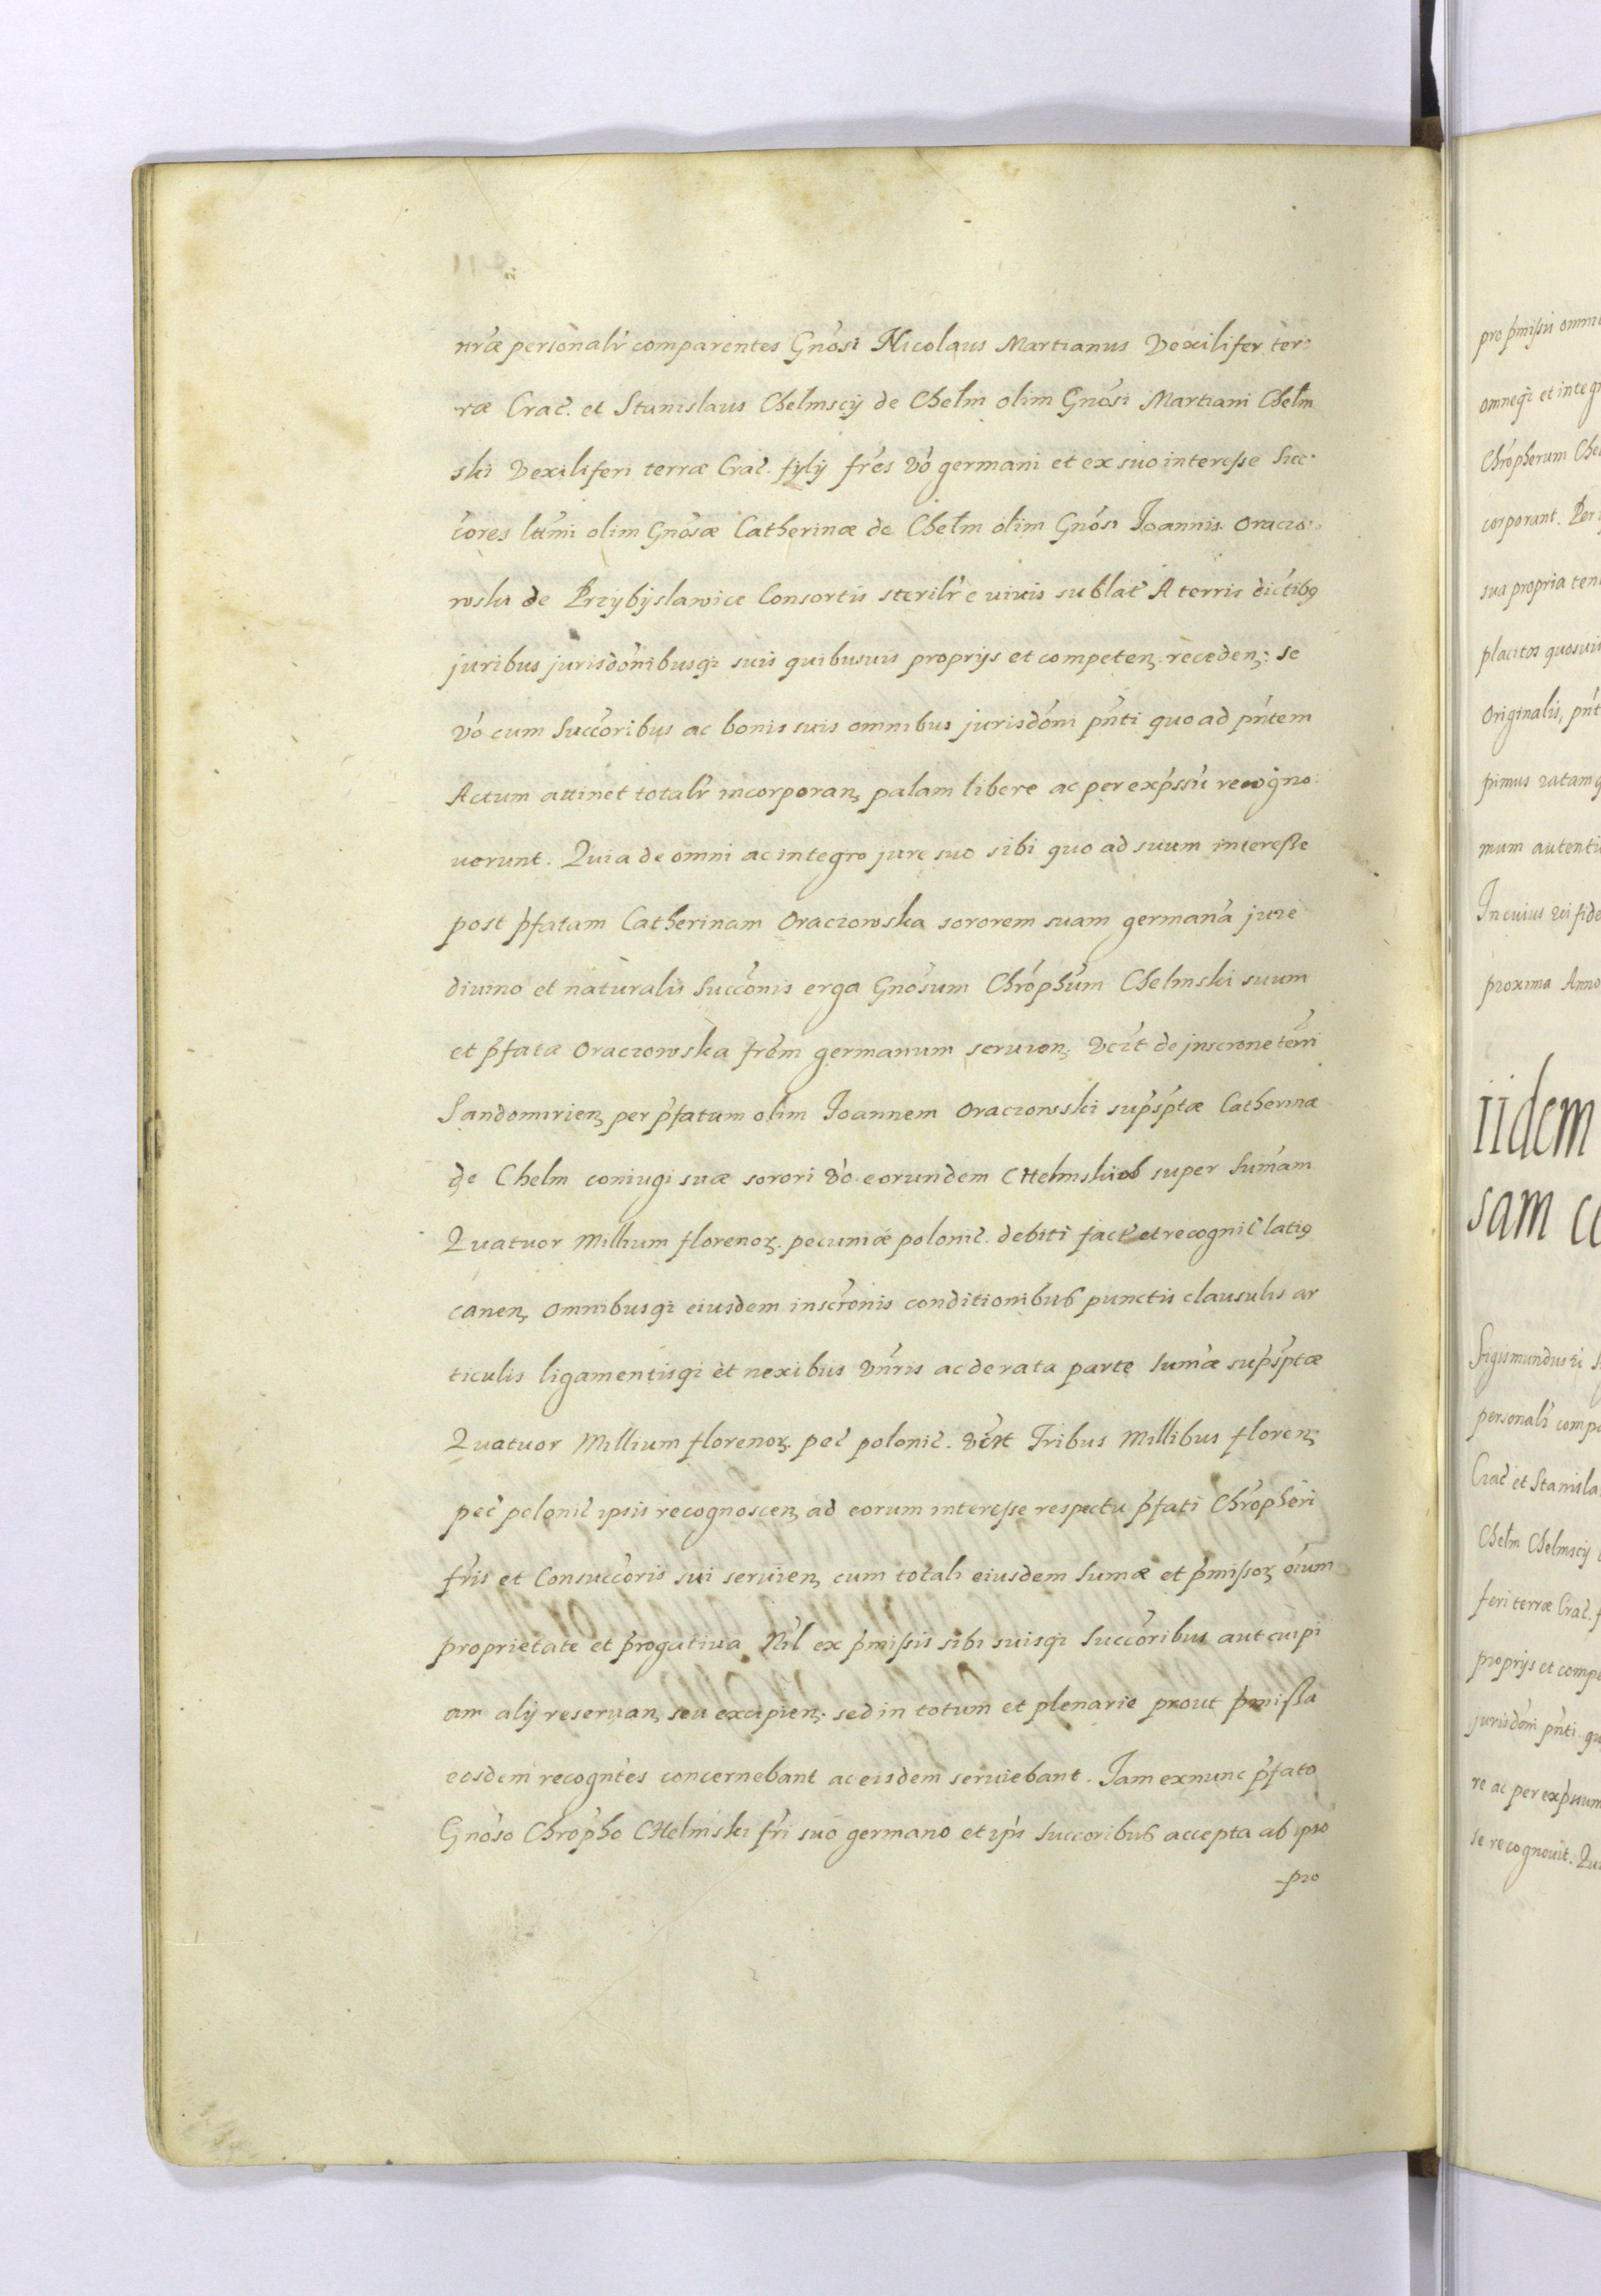 nr̃æ personalr̃ comparentes Gnõsi Nicolaus Martianus Vexilifer ter:
ræ Crac̃. et Stanislaus Chelmscÿ de Chełm olim Gnõsi Martiani Chełm
ski Vexiliferi terræ Crac̃. fÿlÿ frẽs võ germani et ex suo interesse Suc:
cõres ltĩmi olim Gnõsæ Catherinæ de Chełm olim Gnõsi Ioannis Oraczo:
wski de Przybÿslawice Consortis sterilr̃ e viuis sublat̃ A terris dictib9
juribus jurisdõnibusq̃ suis quibusuis proprÿs et competen. receden: se
võ cum Succõribus ac bonis suis omnibus jurisdõni pñti quo ad pñtem
Actum attinet totalr̃ incorporan, palam libere ac per exp̃ssũ recogno:
uerunt. Quia de omni ac integro jure suo sibi quo ad suum interesse
post p̃fatam Catherinam Oraczowska sororem suam germanã jure
diuino et naturalis Succõnis erga Gnõsum Chrõphũm Chelmski suum
et p̃fatæ Oraczowska frẽm germanum seruien. vcĩt de jnscrone terri
Sandomirien, per p̃fatum olim Ioannem Oraczowsski sup̃sp̃tæ Catherinæ
de Chelm coniugi suæ sorori võ eorundem CHelmskich super Sum̃am
Quatuor Millium florenor. pecuniæ polonic̃. debiti fact̃ et recognit̃ lati9
canen, Omnibusq̃ eiusdem inscrõnis conditionibus punctis clausulis ar
ticulis ligamentisq̃ et nexibus vñris ac de rata parte Sum̃æ sup̃sp̃tæ
Quatuor Millium florenor. pec̃ polonic̃. vcĩt Tribus Millibus floren,
pec̃ polonic̃ ipsis recognoscen, ad eorum interesse respectu p̃fati Chrõpheri
fr̃is et Consuccõris sui seruien, cum totali eiusdem Sum̃æ et p̃missor, oĩum
proprietate et p̃rogatiua Nĩl ex p̃missis sibi suisq̃ Succõribus aut cuipi
am alÿ reseruan, seu excipien: sed in totum et plenarie prout p̃missa
eosdem recogntẽs concernebant ac eisdem seruiebant. Iam exnunc p̃fato
Gnõso Chrõpho CHelmski fr̃i suo germano et ip̃s Succoribus accepta ab ipso
-pro
pro p̃missis
omneq̃ et integr
Chrõpherum Chel
corporant. Per
sua propria ten
placitos quosuis
Originalis, pñt
pimus ratam
mum autenti
In cuius rei fide
proxima Anno
iidem
sam
Sigismundus
personalr̃ comp
Crac̃ et Stanisla
Chełm Chelmscÿ
feri terræ Crac̃.
proprÿs et comp
jurisdõni pñti
re ac per exp̃ssum
se recognouit. Qui